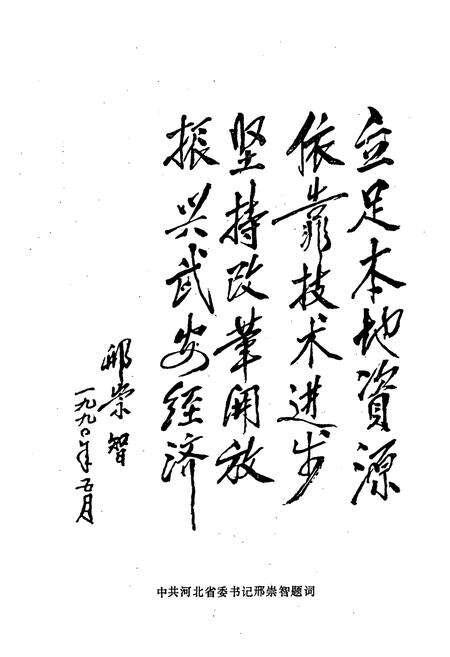 立足本地資源
依靠技术进步
坚持改革開放
振兴武安经济
邢崇智
一九九〇年五月
中共河北省委书记邢崇智题词